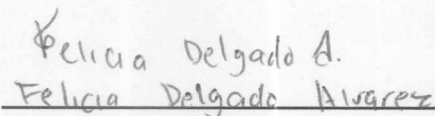 Felicia Delgado A.
Felicia Delgado Alvarez